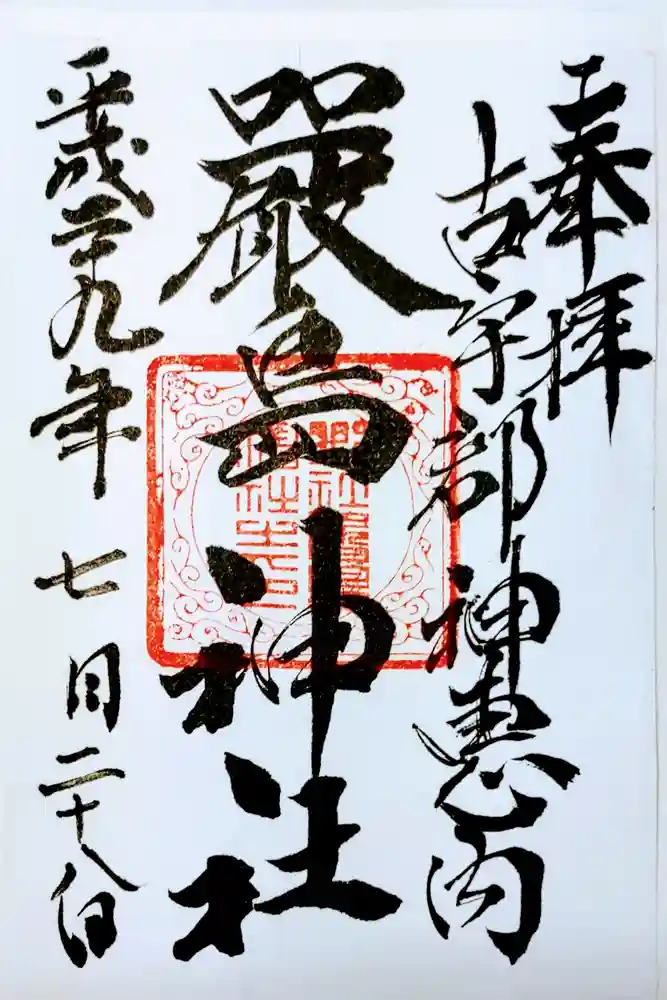 奉拝
古宇郡神恵内
嚴島神社
平成二十九年七月二十八日